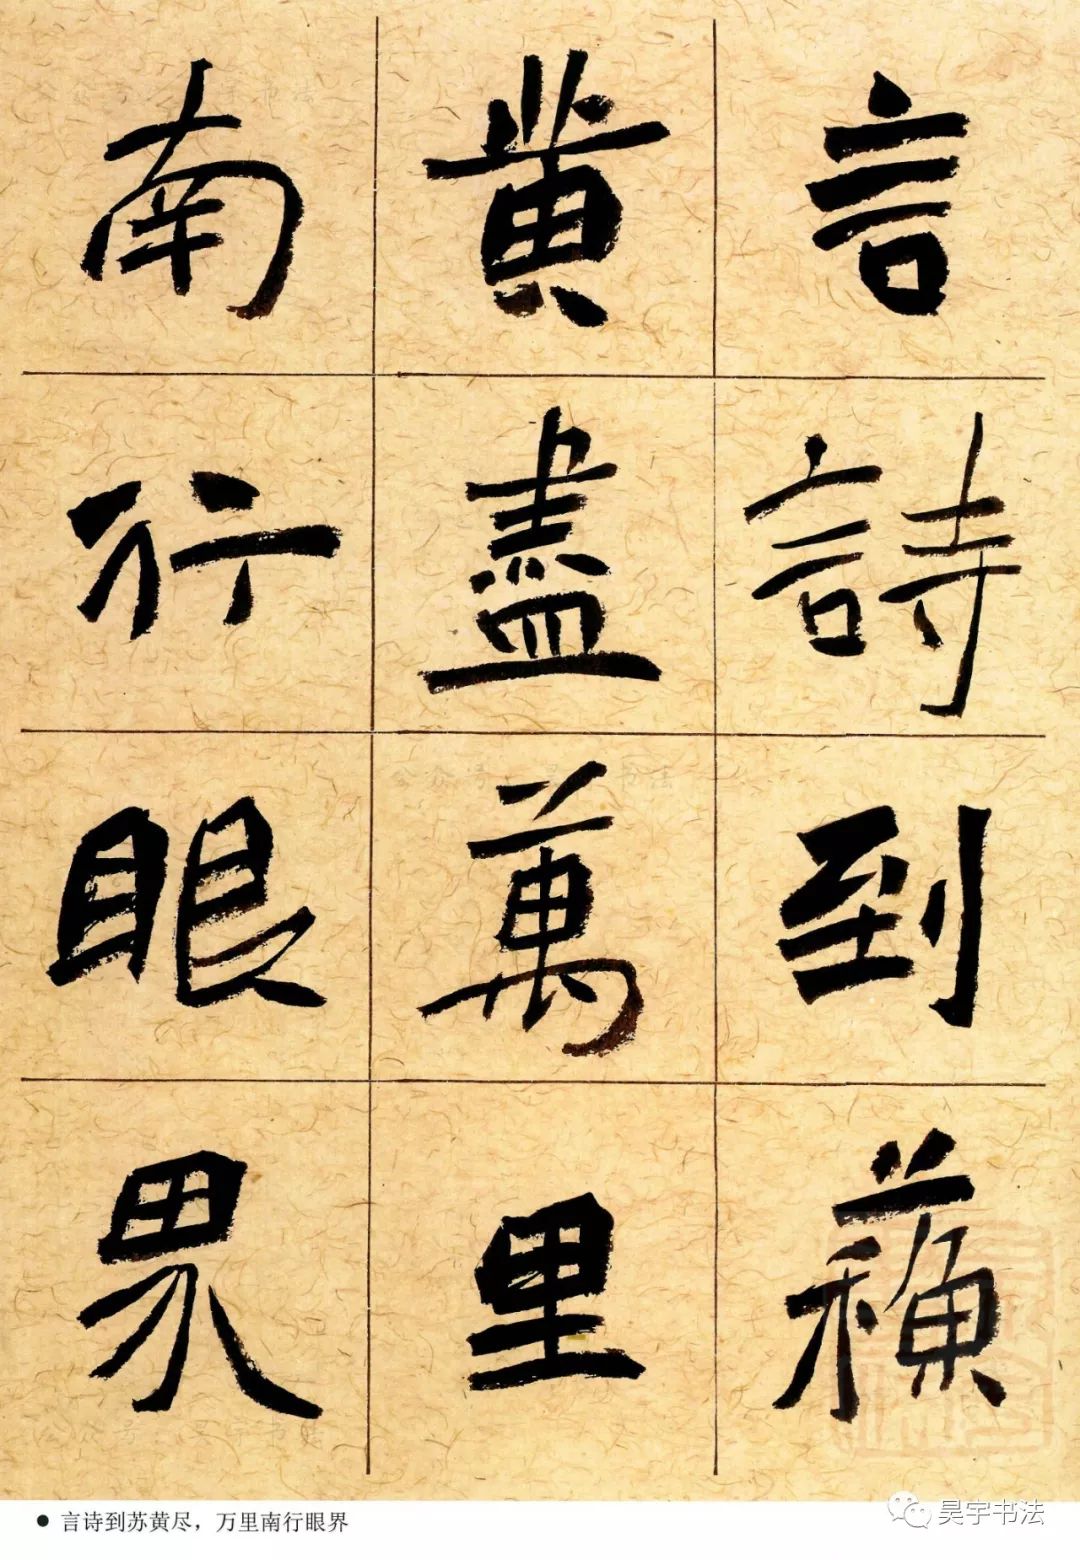 言詩到蘓
黄盡萬里
南行眼界
● 言诗到苏黄尽，万里南行眼界
昊宇书法